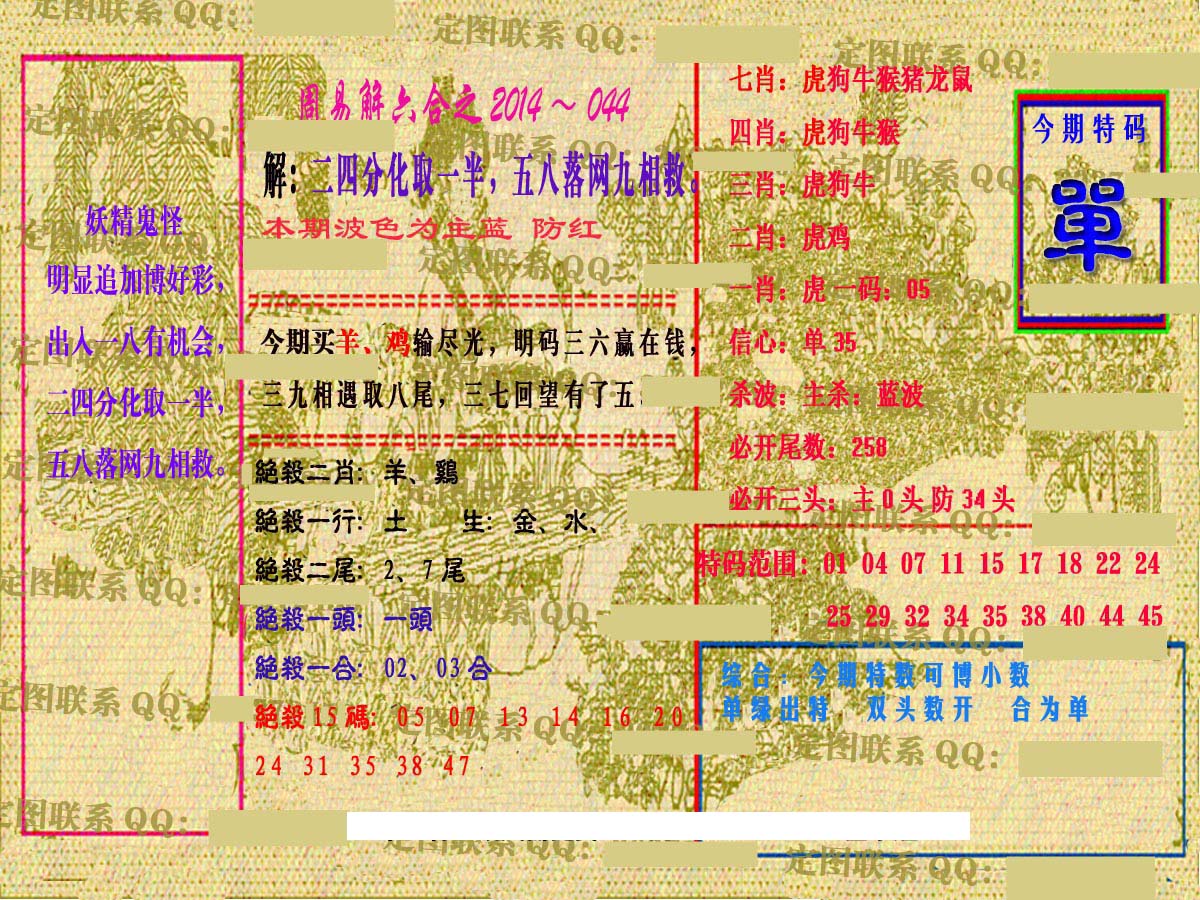 周易解六合之2014～044
解：二四分化取一半，五八落网九相救。
本期波色为主蓝 防红
妖精鬼怪
明显追加博好彩，
出入一八有机会，
二四分化取一半，
五八落网九相救。
今期买羊、鸡输尽光，明码三六赢在钱，
三九相遇取八尾，三七回望有了五
絕殺二肖：羊、鷄
絕殺一行：土 生：金、水、
絕殺二尾：2、7尾
絕殺一頭：一頭
絕殺一合：02、03合
絕殺15碼：05 07 13 14 16 20
24 31 35 38 47
七肖：虎狗牛猴猪龙鼠
四肖：虎狗牛猴
三肖：虎狗牛
二肖：虎鸡
一肖：虎一码：05
信心：单35
杀波：主杀：蓝波
必开尾数：258
必开三头：主0头防34头
今期特码
單
特码范围：01 04 07 11 15 17 18 22 24
25 29 32 34 35 38 40 44 45
综合：今期特数可博小数
单绿出特 双头数开 合为单
定图联系QQ：
定图联系QQ：
定图联系QQ：
定图联系QQ：
定图联系QQ：
定图联系QQ：
定图联系QQ：
定图联系QQ：
定图联系QQ：
定图联系QQ：